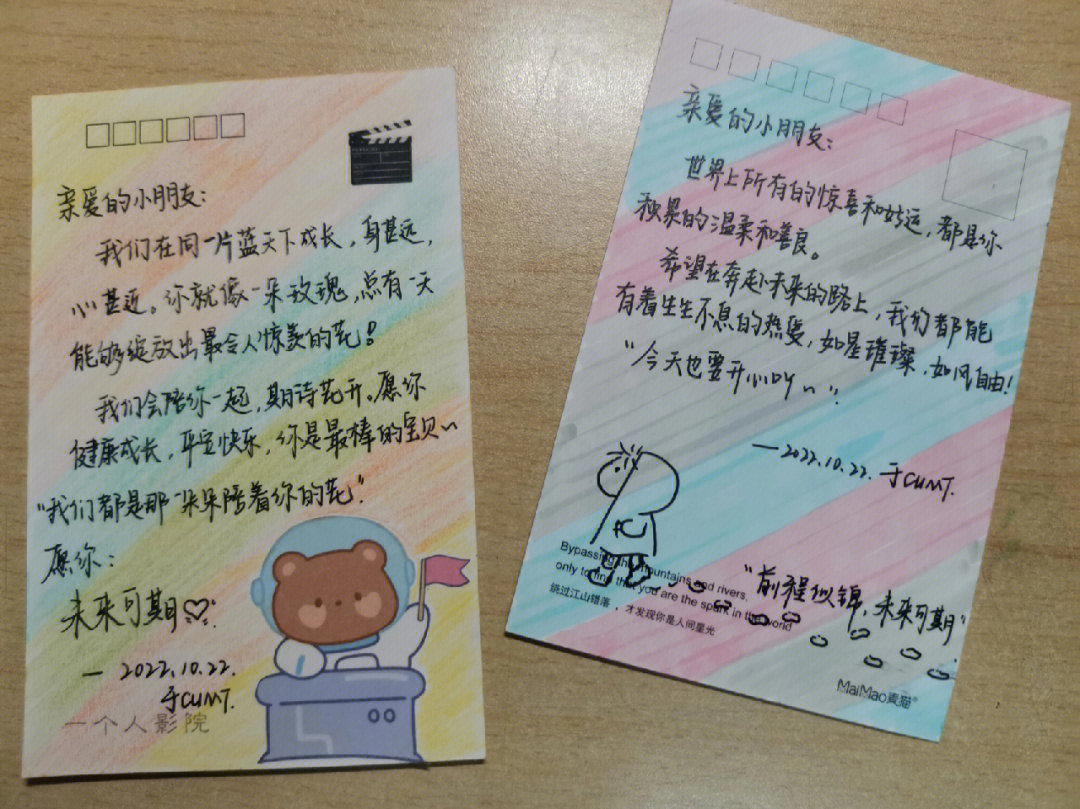 亲爱的小朋友:
我们在同一片蓝天下成长,身甚远,
心甚近。你就像一朵玫瑰,总有一天
能够绽放出最令人惊羡的花!
我们会陪你一起,期待花开。愿你
健康成长,平安快乐,你是最棒的宝贝~
“我们都是那一朵朵陪着你的花”
愿你:
未来可期
— 2022.10.22.
于CUMT.
一个人影院
亲爱的小朋友:
世界上所有的惊喜和好运,都是你
积累的温柔和善良。
希望在奔赴未来的路上,我们都能
有着生生不息的热爱,如星璀璨,如风自由!
“今天也要开心吖~”
—2022.10.22.于CUMT.
Bypassing the mountains and rivers,
only to find that you are the spark in the world
绕过江山错落,才发现你是人间星光
“前程似锦,未来可期”
MaiMao麦猫®